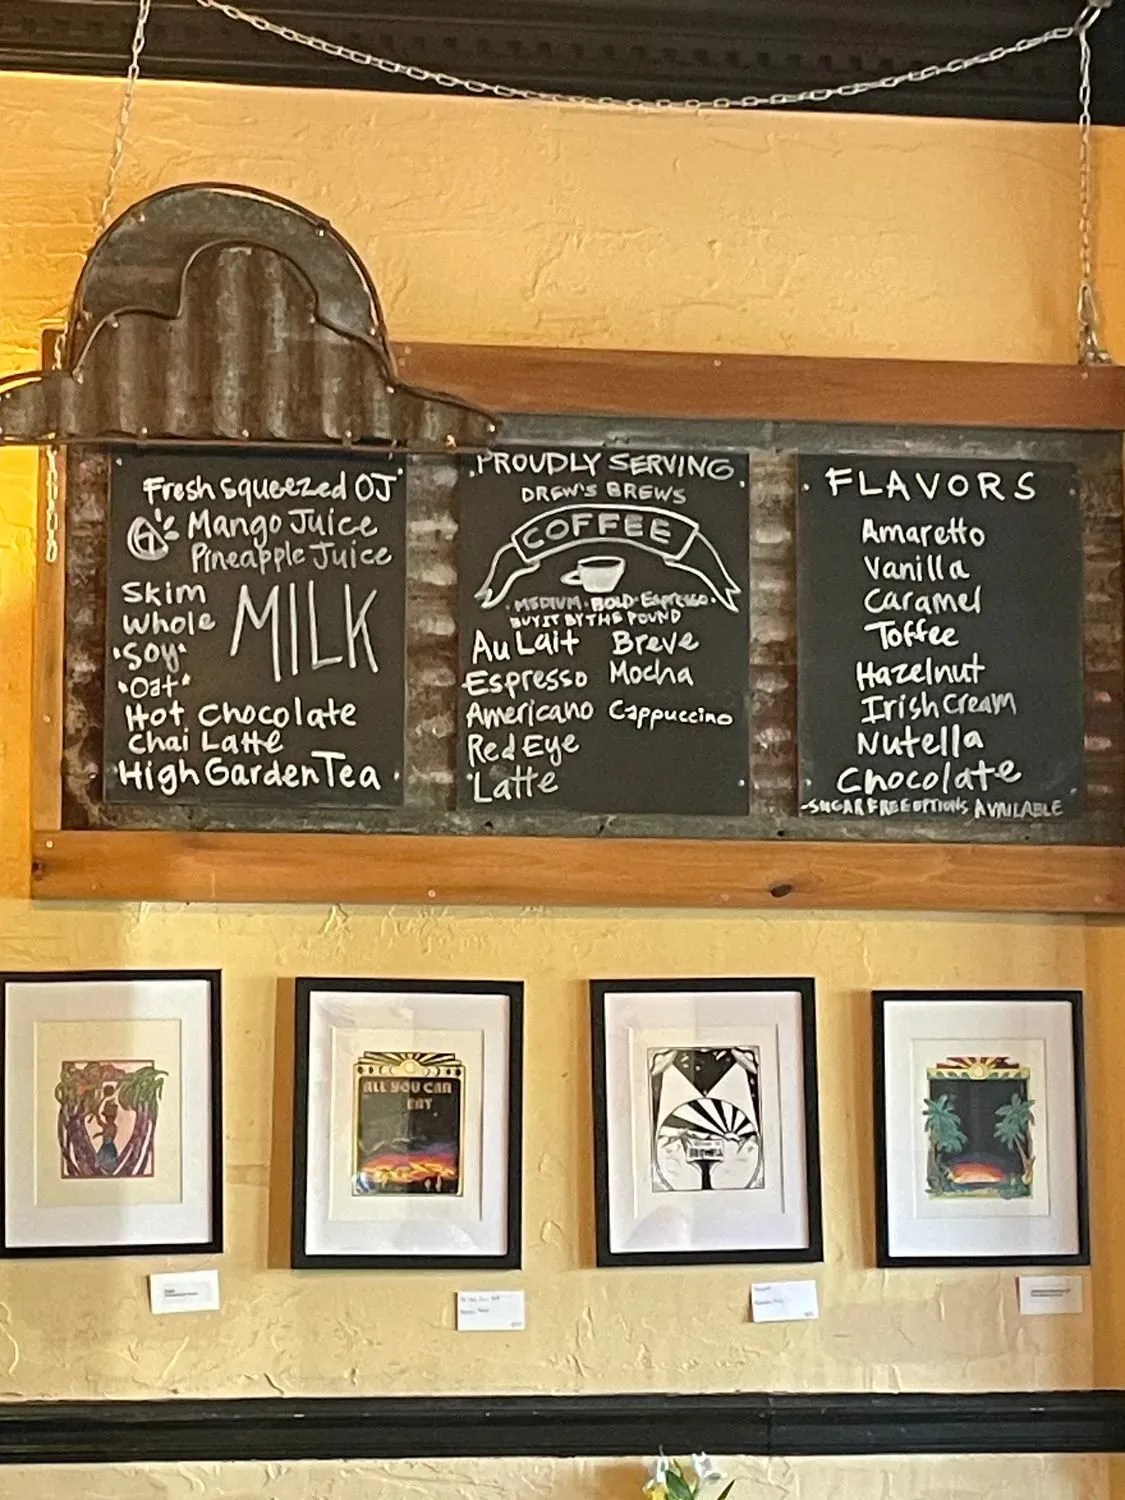 Fresh squeezed OJ
Mango Juice
Pineapple Juice
Skim
Whole
"Soy"
"Oat"
MILK
Hot Chocolate
Chai Latte
High Garden Tea
PROUDLY SERVING
DREW'S BREWS
COFFEE
MEDIUM · BOLD · Espresso
BUY IT BY THE POUND
Au Lait Breve
Espresso Mocha
Americano Cappuccino
Red Eye
Latte
FLAVORS
Amaretto
Vanilla
Caramel
Toffee
Hazelnut
Irish Cream
Nutella
Chocolate
-SUGAR FREE OPTIONS AVAILABLE
ALL YOU CAN
EAT